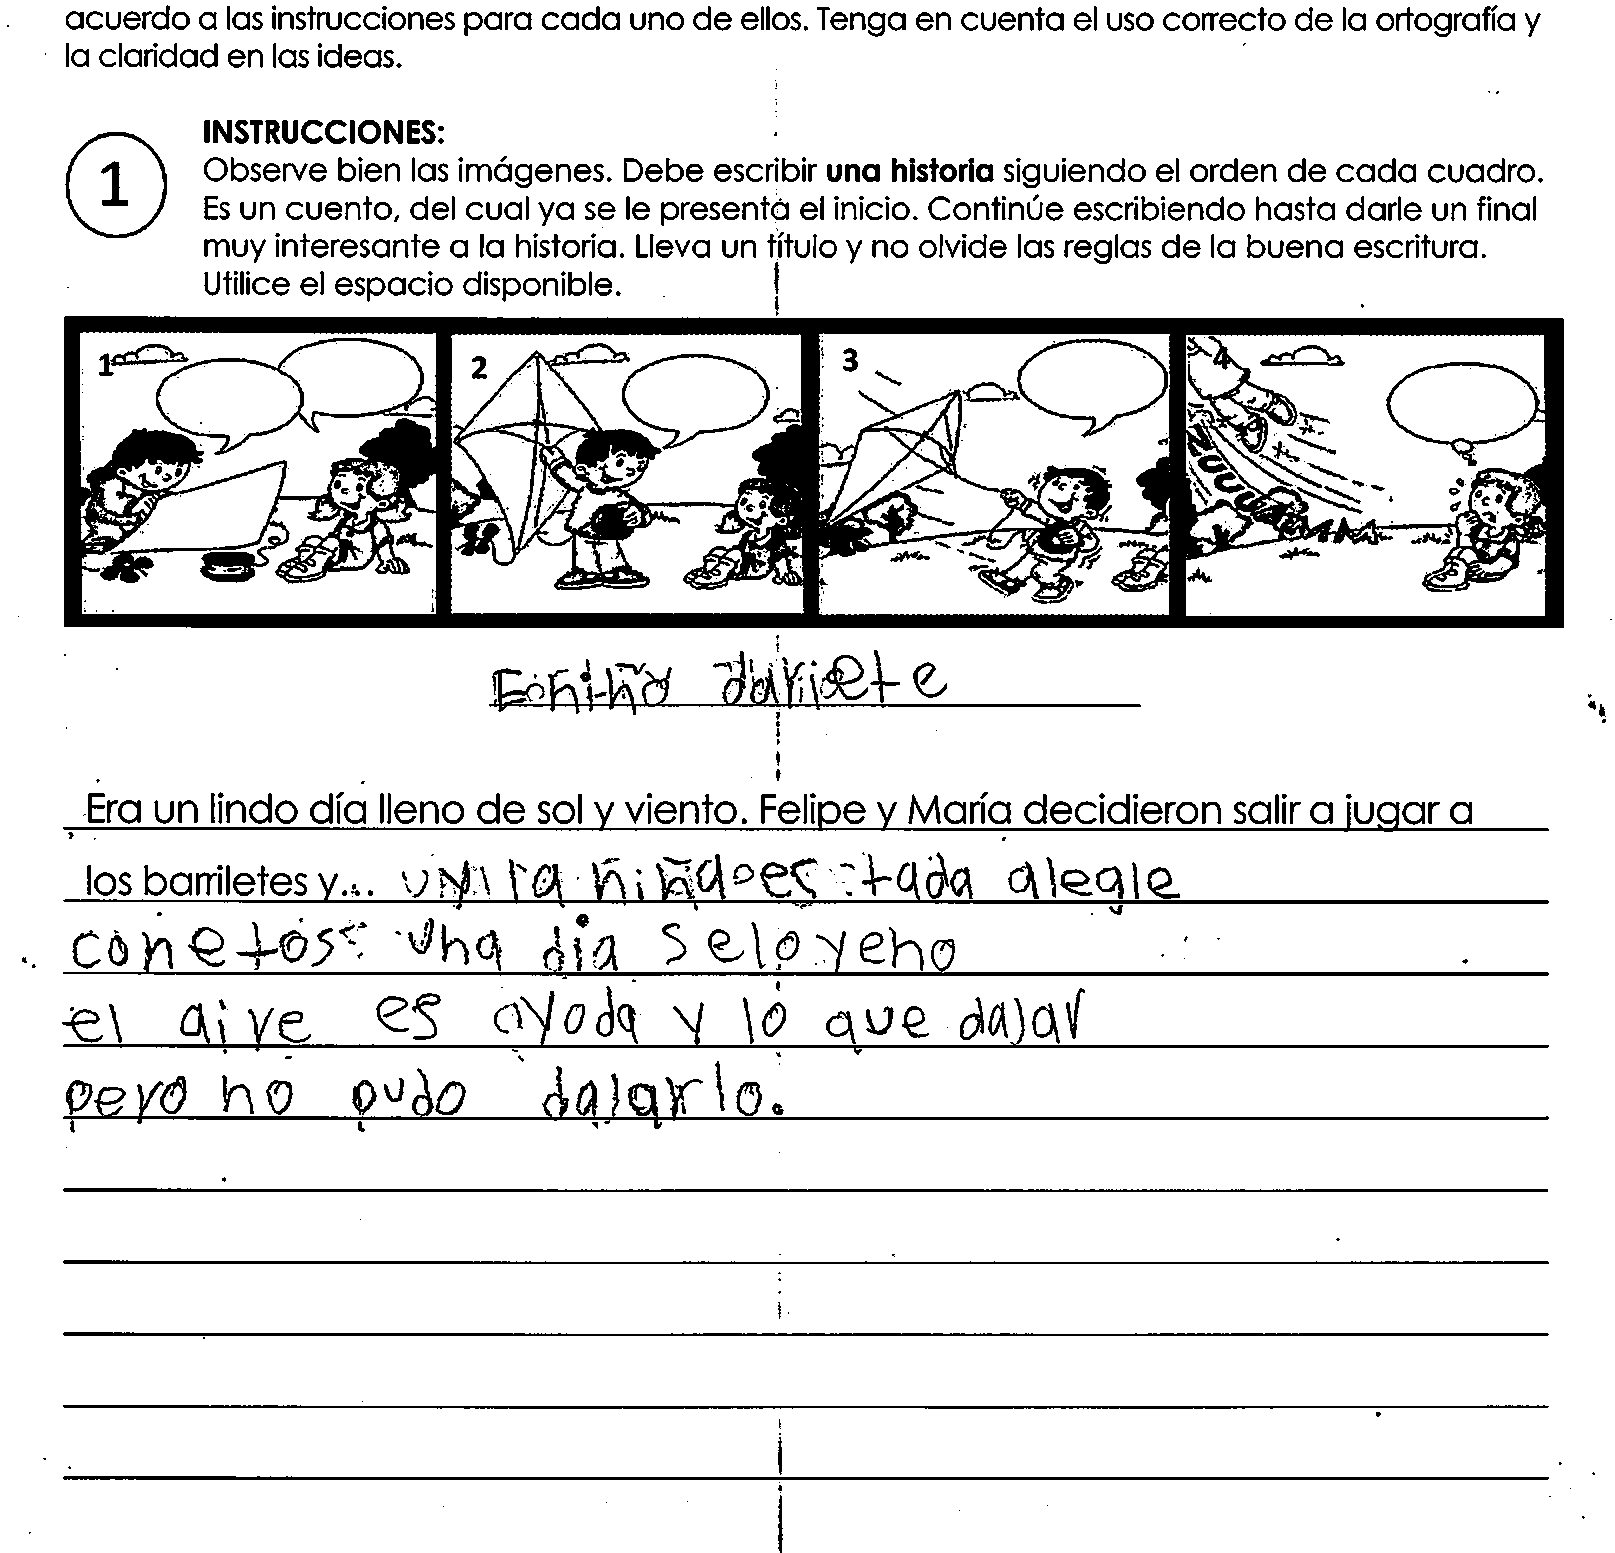 acuerdo a las instrucciones para cada uno de ellos. Tenga en cuenta el uso correcto de la ortografía y
la claridad en las ideas.
1
INSTRUCCIONES:
Observe bien las imágenes. Debe escribir una historia siguiendo el orden de cada cuadro.
Es un cuento, del cual ya se le presenta el inicio. Continúe escribiendo hasta darle un final
muy interesante a la historia. Lleva un título y no olvide las reglas de la buena escritura.
Utilice el espacio disponible.
1 2 3 4
dariete
Era un lindo día lleno de sol y viento. Felipe y María decidieron salir a jugar a
los barriletes y... niña tada alegle
conetos una dia seloyeno
el aire es ayoda y lo que dajar
pero no pudo dalarlo.